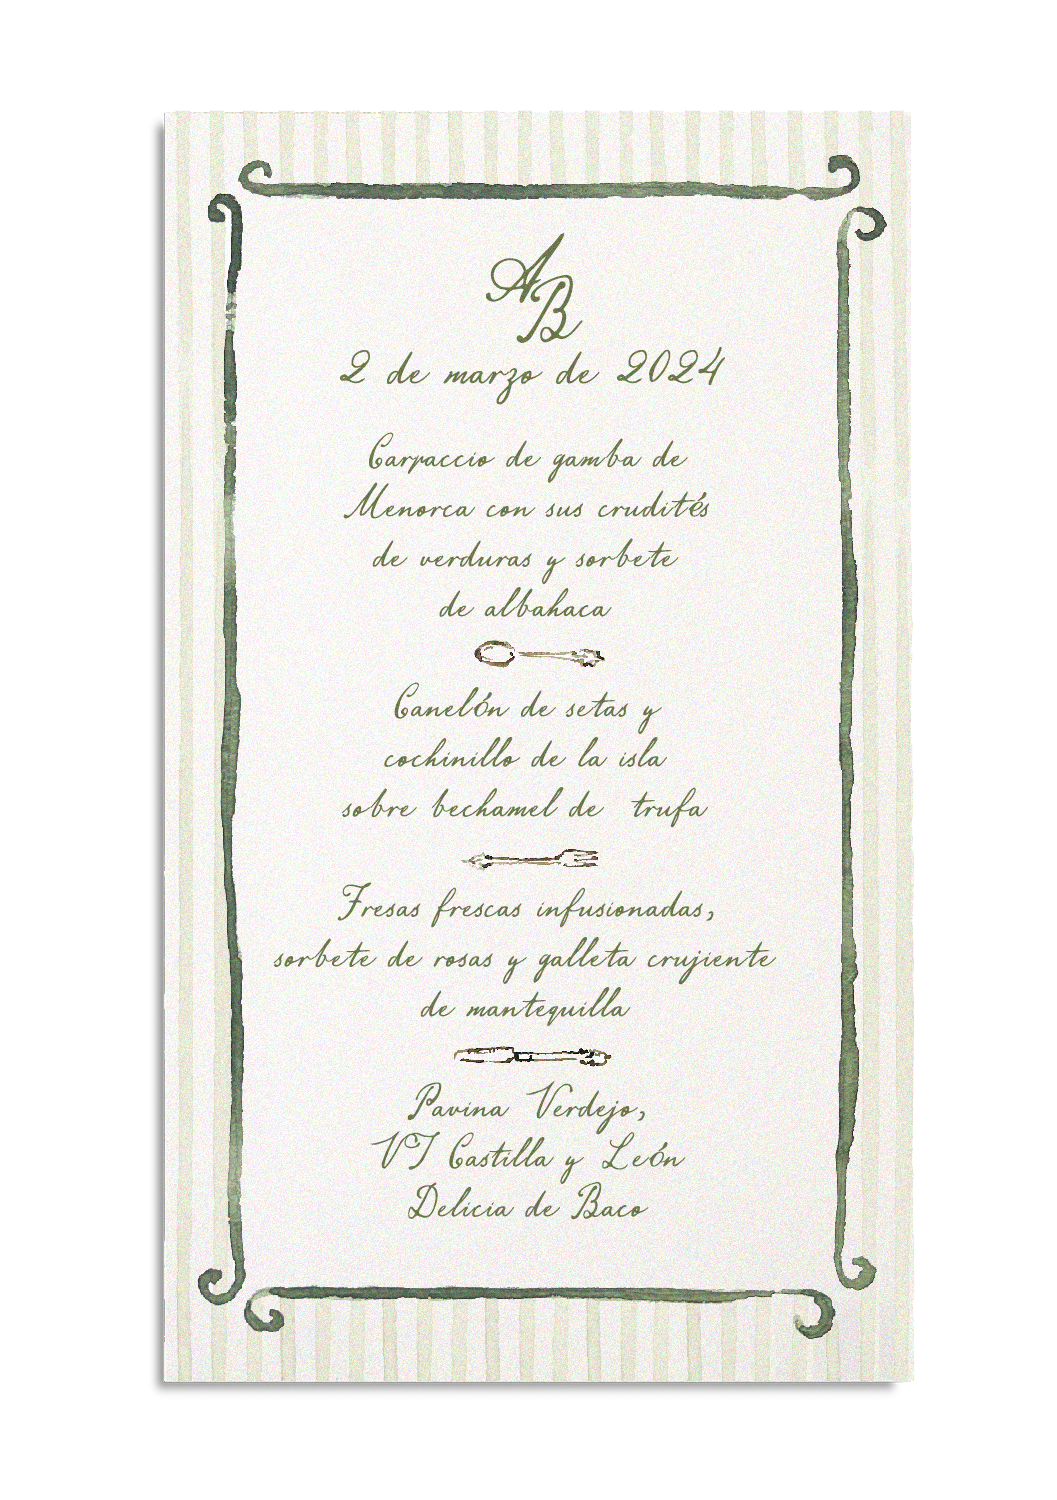 A
B
2 de marzo de 2024
Carpaccio de gamba de
Menorca con sus crudités
de verduras y sorbete
de albahaca
Canelón de setas y
cochinillo de la isla
sobre bechamel de trufa
Fresas frescas infusionadas,
sorbete de rosas y galleta crujiente
de mantequilla
Pavina Verdejo,
VT Castilla y León
Delicia de Baco